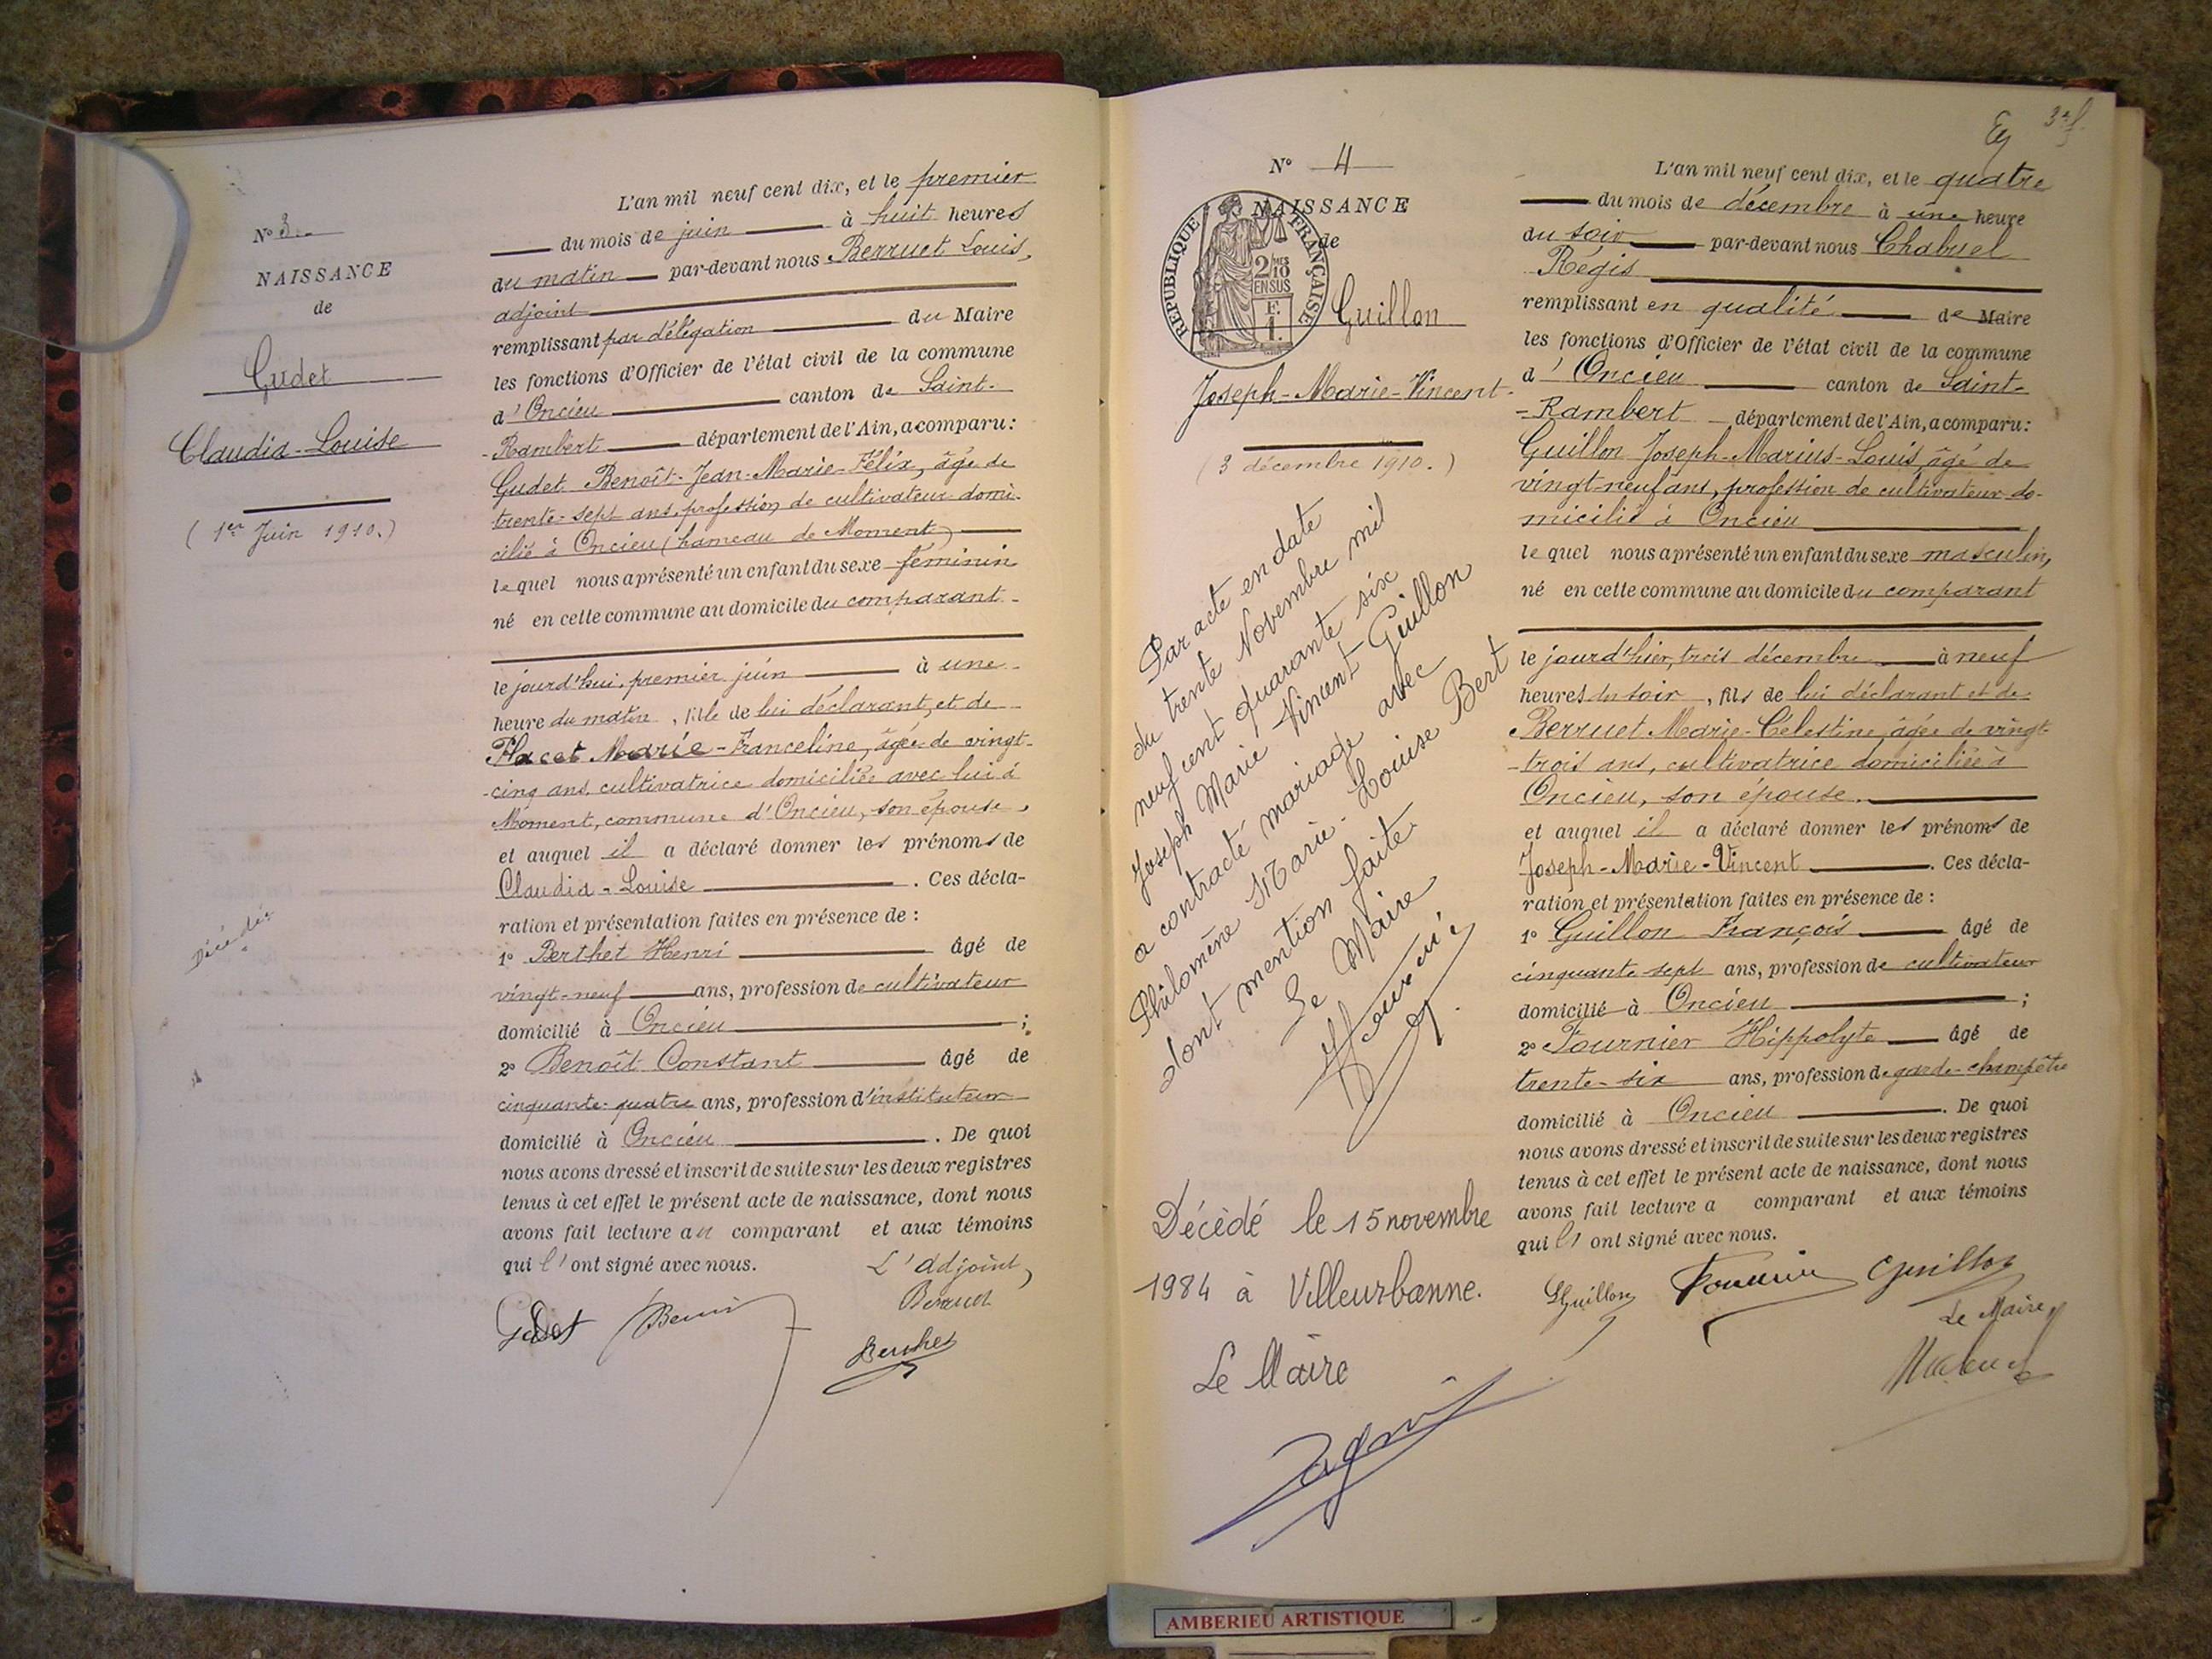 N° 3
NAISSANCE
de
Gudet
Claudia-Louise
( 1er Juin 1910.)
Décédée
L'an mil neuf cent dix, et le premier
du mois de juin à huit heures
du matin par-devant nous Berruet Louis,
adjoint
remplissant par délégation du Maire
les fonctions d'Officier de l'état civil de la commune
d'Oncieu canton de Saint-
-Rambert département de l'Ain, a comparu :
Gudet Benoît-Jean-Marie-Félix, âgé de
trente-sept ans, profession de cultivateur domi-
cilié à Oncieu (hameau de Moment)
lequel nous a présenté un enfant du sexe féminin
né en cette commune au domicile du comparant
le jourd'hui, premier juin à une
heure du matin, fille de lui déclarant, et de
Placet Marie-Franceline, âgée de vingt-
-cinq ans, cultivatrice domiciliée avec lui à
Moment, commune d'Oncieu, son épouse,
et auquel il a déclaré donner les prénoms de
Claudia-Louise . Ces décla-
ration et présentation faites en présence de :
1° Berthet Henri âgé de
vingt-neuf ans, profession de cultivateur
domicilié à Oncieu ;
2° Benoît Constant âgé de
cinquante-quatre ans, profession d'instituteur
domicilié à Oncieu . De quoi
nous avons dressé et inscrit de suite sur les deux registres
tenus à cet effet le présent acte de naissance, dont nous
avons fait lecture au comparant et aux témoins
qui l'ont signé avec nous.
L'adjoint,
Berruet
Gudet Benoit
Berthet
Eg
N° 4
NAISSANCE
de
RÉPUBLIQUE FRANÇAISE
2/10
EN SUS
F.
1.
Guillon
Joseph-Marie-Vincent
( 3 décembre 1910. )
Par acte en date
du trente Novembre mil
neuf cent quarante six
Joseph Marie Vincent Guillon
a contracté mariage avec
Philomène Marie-Louise Bert
dont mention faite.
Le Maire
Décédé le 15 novembre
1984 à Villeurbanne.
Le Maire
L'an mil neuf cent dix, et le quatre
du mois de décembre à une heure
du soir par-devant nous Chabuel
Régis
remplissant en qualité de Maire
les fonctions d'Officier de l'état civil de la commune
d'Oncieu canton de Saint-
-Rambert département de l'Ain, a comparu :
Guillon Joseph-Marius-Louis âgé de
vingt-neuf ans, profession de cultivateur do-
micilié à Oncieu
lequel nous a présenté un enfant du sexe masculin,
né en cette commune au domicile du comparant
le jourd'hier, trois décembre à neuf
heures du soir, fils de lui déclarant et de
Berruet Marie-Célestine, âgée de vingt-
-trois ans, cultivatrice domiciliée à
Oncieu, son épouse.
et auquel il a déclaré donner les prénoms de
Joseph-Marie-Vincent . Ces décla-
ration et présentation faites en présence de :
1° Guillon François âgé de
cinquante sept ans, profession de cultivateur
domicilié à Oncieu ;
2° Fournier Hippolyte âgé de
trente-six ans, profession de garde-champêtre
domicilié à Oncieu . De quoi
nous avons dressé et inscrit de suite sur les deux registres
tenus à cet effet le présent acte de naissance, dont nous
avons fait lecture a comparant et aux témoins
qui l' ont signé avec nous.
LGuillon Fournier Guillon
Le Maire,
Chabuel
AMBERIEU ARTISTIQUE